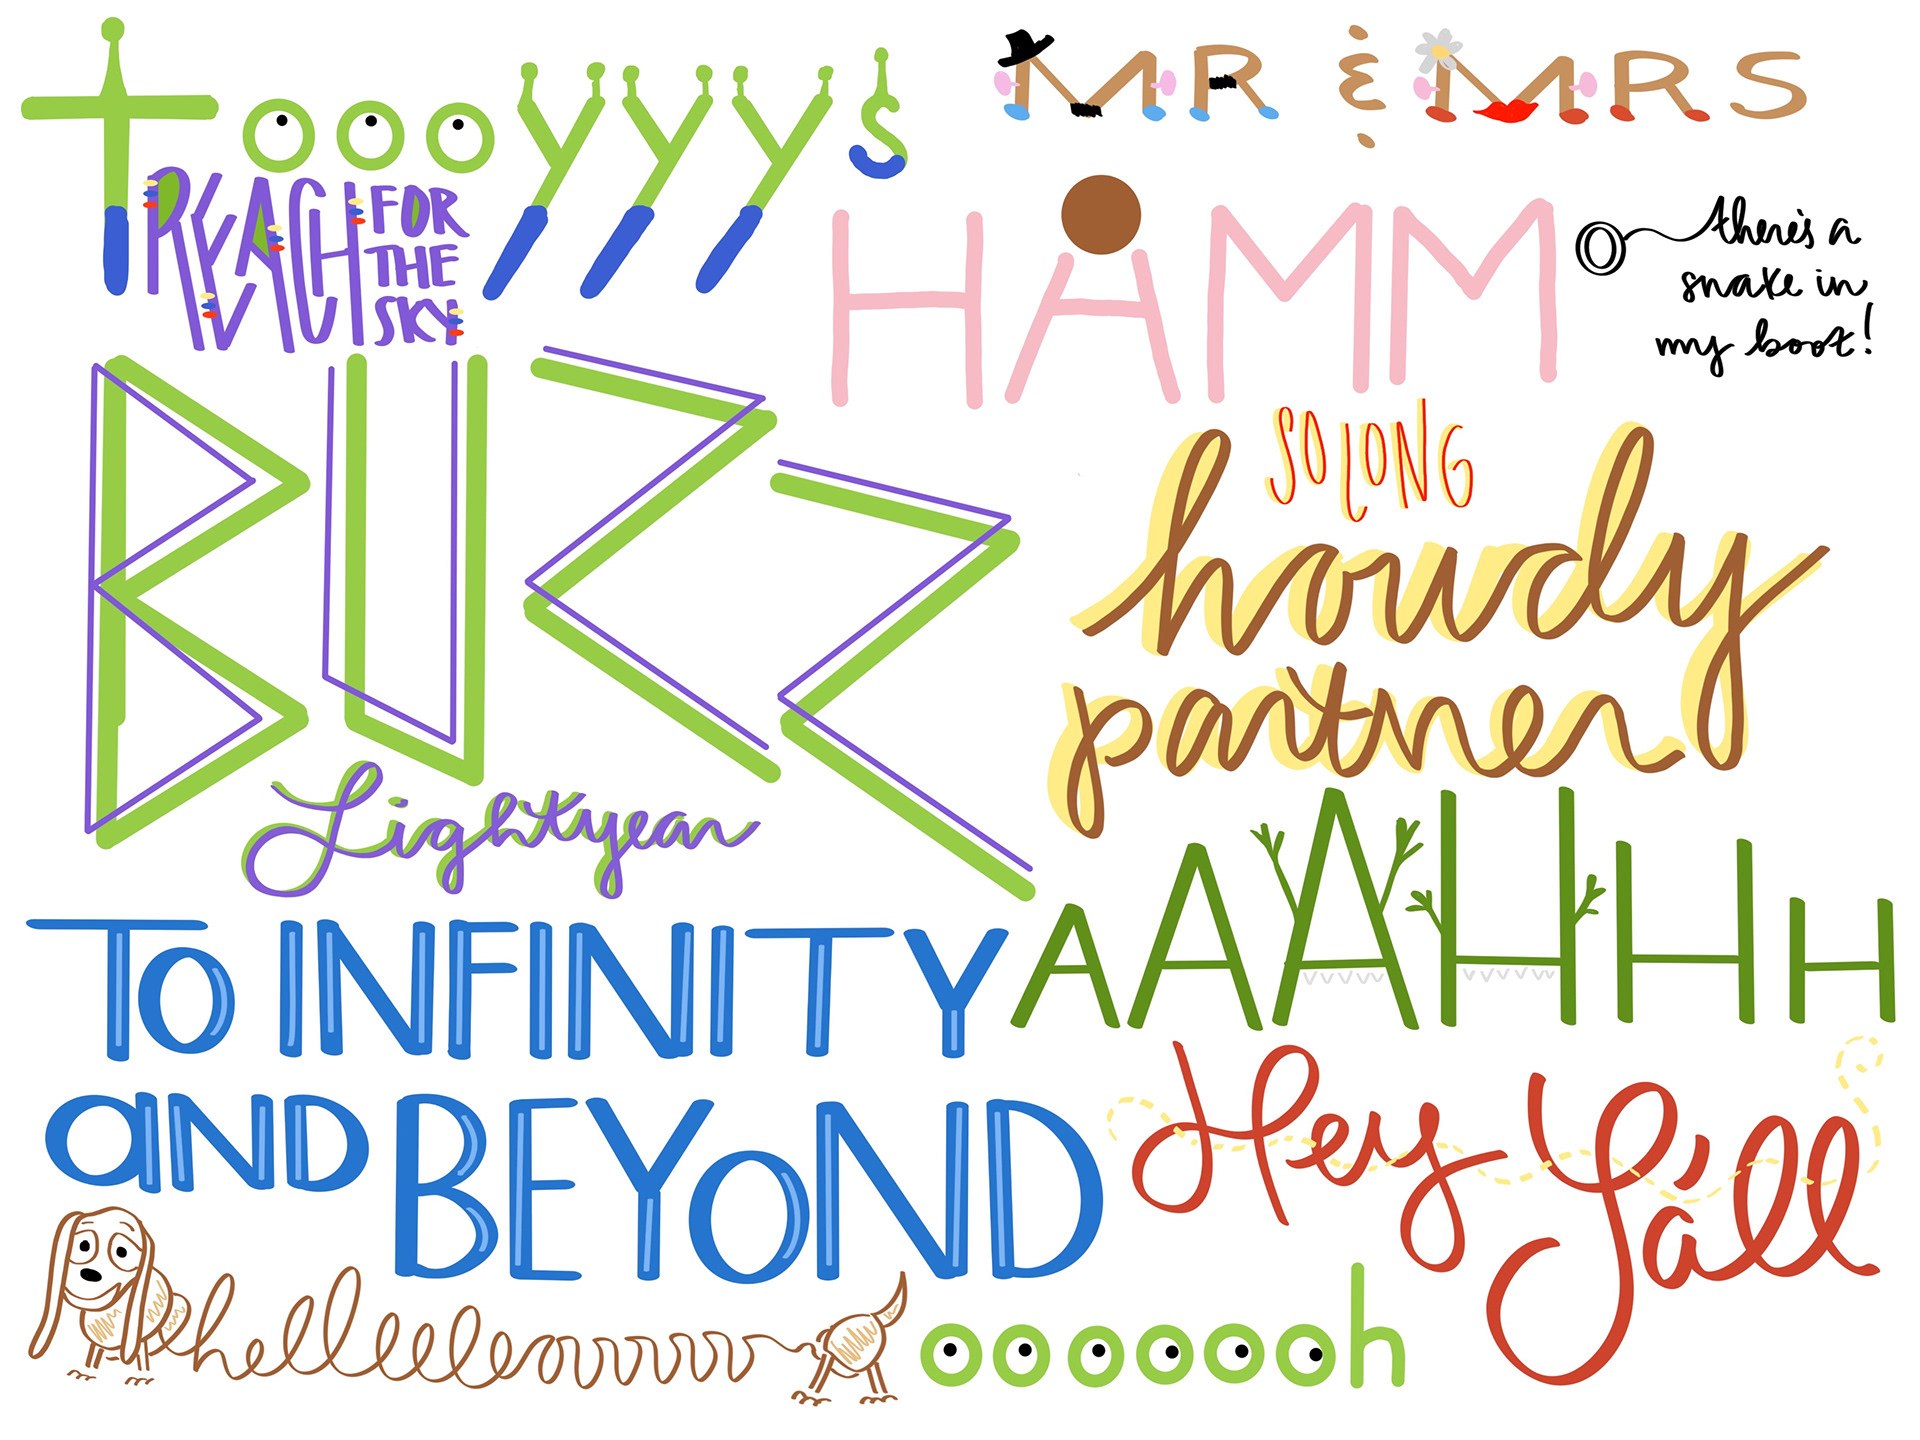 Toooyyys
MR & MRS
REACH
FOR
THE
SKY
HAMM
there's a
snake in
my boot!
BUZZ
Lightyear
SO LONG
howdy
partner
TO INFINITY
AAAHHH
AND BEYOND
Hey Y'all
ooooooh